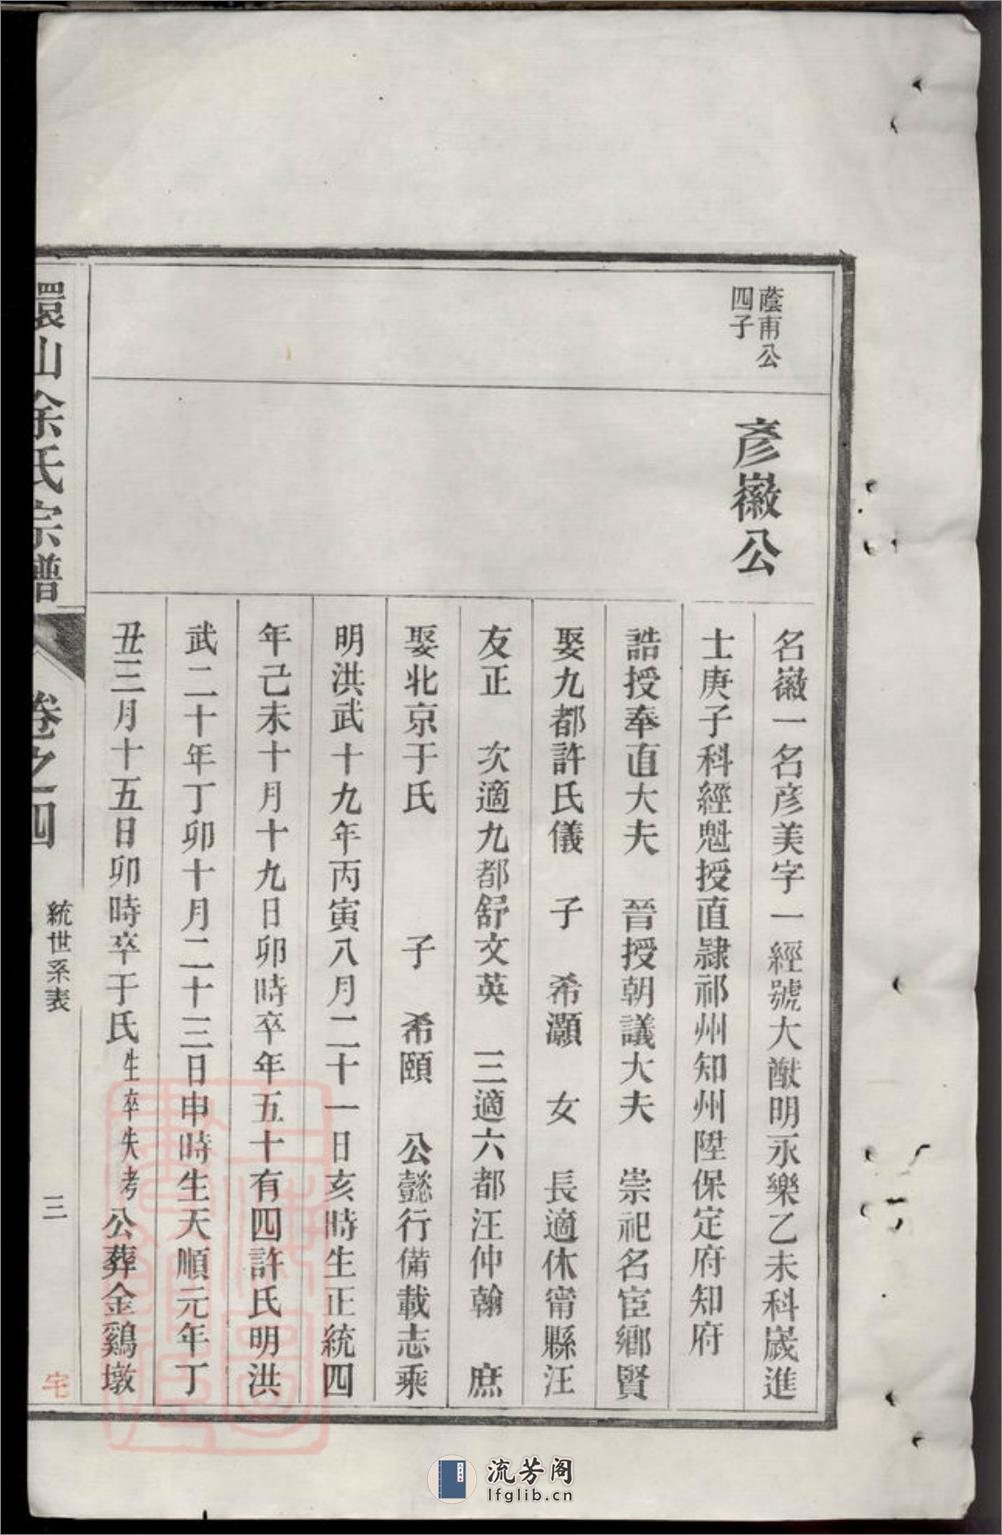 蔭甫公
四子
彥徽公
名徽一名彦美字一經號大猷明永樂乙未科歲進
士庚子科經魁授直隷祁州知州陞保定府知府
誥授奉直大夫 晉授朝議大夫 崇祀名宦鄉賢
娶九都許氏儀 子 希灝 女 長適休甯縣汪
友正 次適九都舒文英 三適六都汪仲翰 庶
娶北京于氏 子 希頤 公懿行備載志乘
明洪武十九年丙寅八月二十一日亥時生正統四
年己未十月十九日卯時卒年五十有四許氏明洪
武二十年丁卯十月二十三日申時生天順元年丁
丑三月十五日卯時卒于氏生卒失考公葬金鷄墩
環山余氏宗譜
卷之四
統世系表
三
宅
流芳阁
lfglib.cn